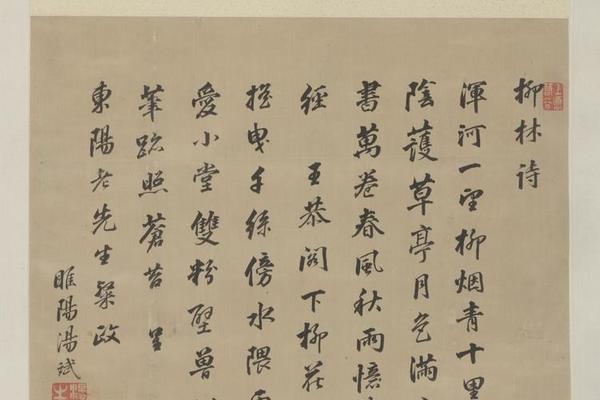 柳林詩
渾河一望柳烟青十里
陰護草亭月色滿
書萬卷春風秋雨憶
經 王恭閣下柳
搖曳千絲傍水隈
愛小堂雙粉壁
筆跡照蒼苔 呈
東陽老先生粲政
睢陽湯斌